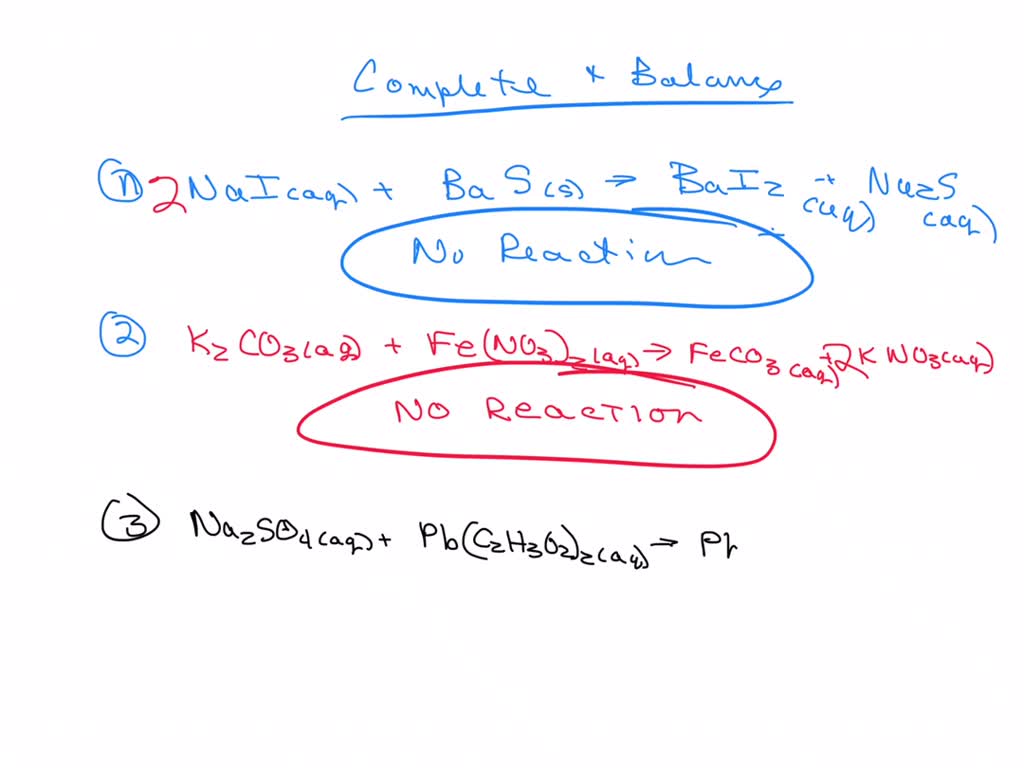 Complete + Balance
① 2NaI(aq) + BaS(s) → BaI₂(aq) + Na₂S(aq)
No Reaction
② K₂CO₃(aq) + Fe(NO₃)₂(aq) → FeCO₃(aq) + 2KNO₃(aq)
NO REACTION
③ Na₂SO₄(aq) + Pb(C₂H₃O₂)₂(aq) → Pb